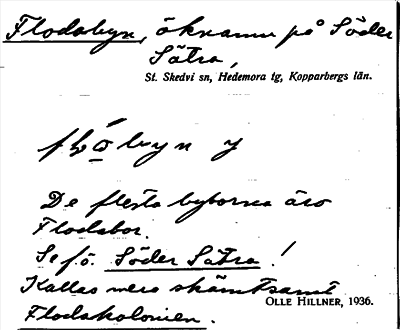 Flodabyn, öknamn på Söder
Sätra,
St. Skedvi sn, Hedemora tg, Kopparbergs län.
byn
De flesta byborna äro
Flodabor.
Se f.ö. Söder Sätra!
Kallas mera skämtsamt
OLLE HILLNER, 1936.
Flodakolonien.